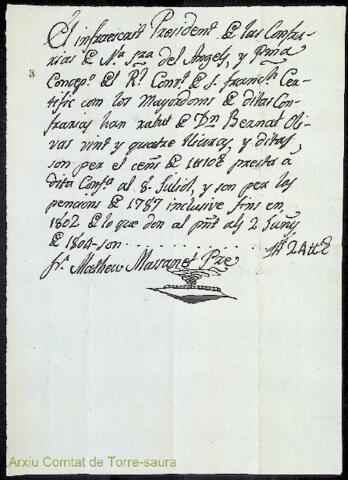 El infraescrit President de las Confra-
rias de Nª Sra del Angels, y Pma
Concepº del Rl Convt de S. Franch Cer-
tific com los Mayordoms de ditas Con-
frarias han rabut de Dn Bernat Oli-
vas vint y quatre lliuras, y ditas,
son per el cens de presta a
dita Confª al 8 Juliol, y son per las
pencions de 1787 inclusive fins en
1802 de lo que don al pnt als 2 Juny
de 1804 - son
fr. Matheu Massanet Pre
Arxiu Comtat de Torre-saura